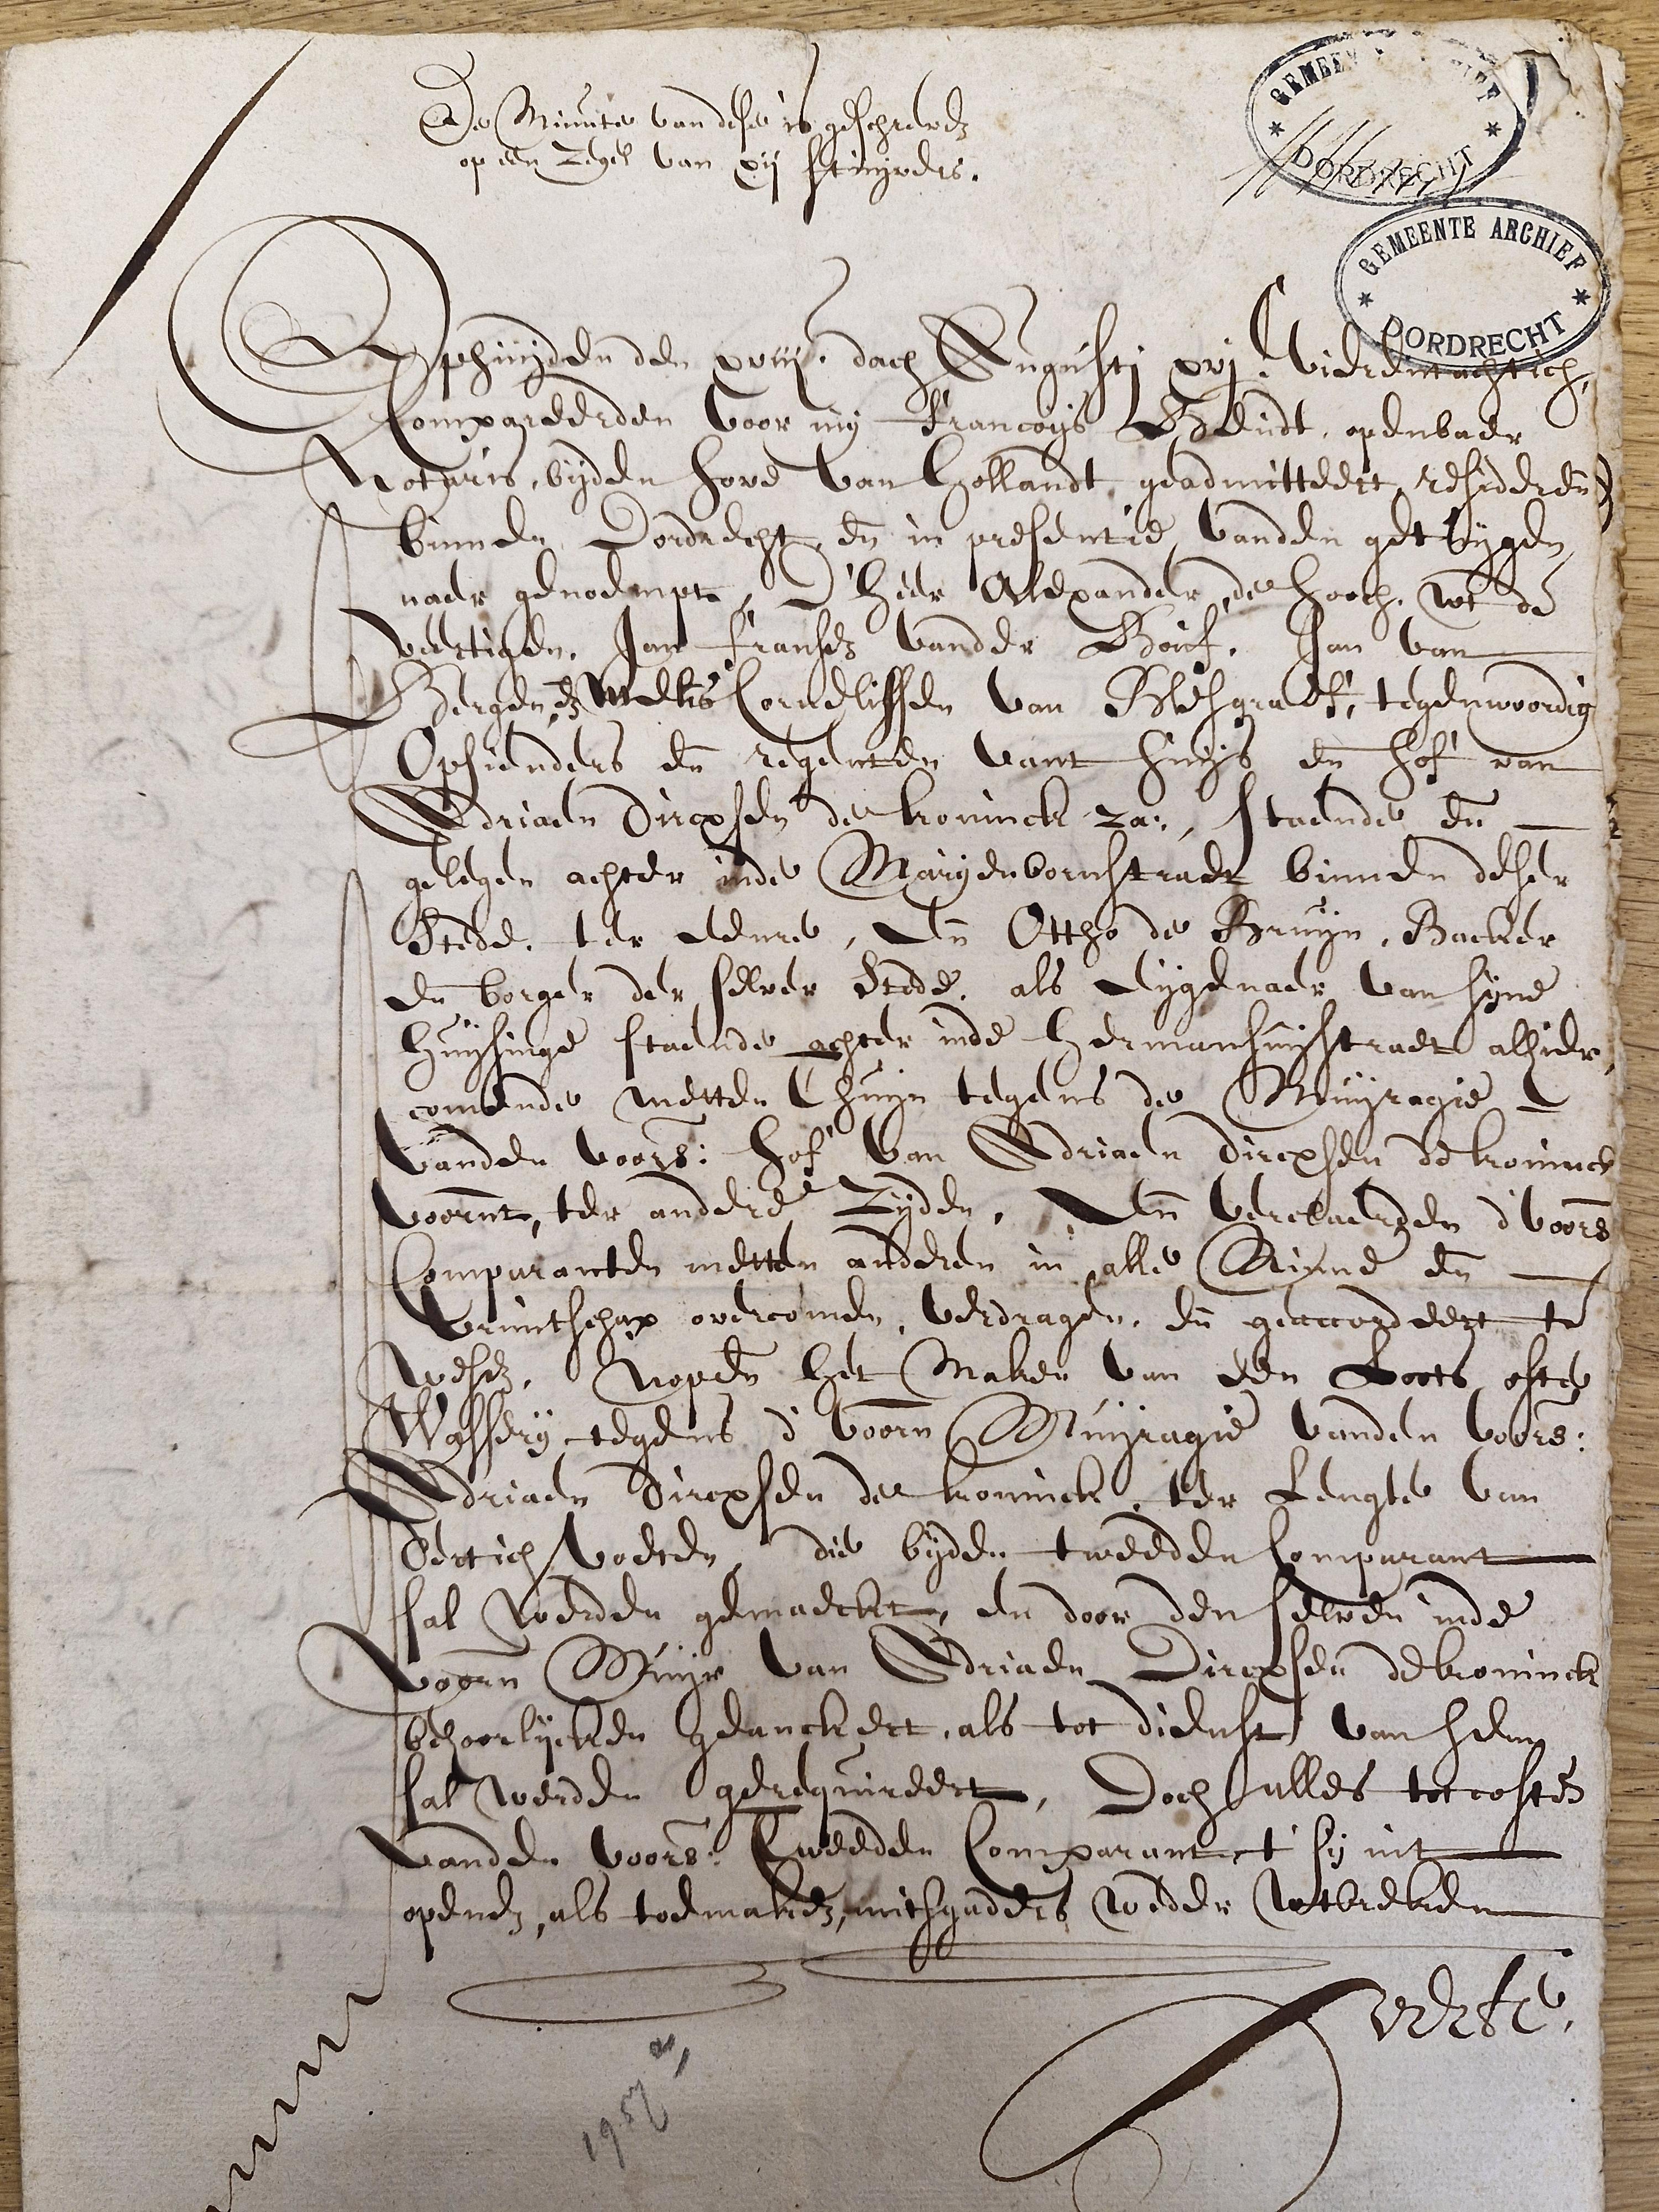 De Minute van dese is geschreven
op een Zegel van xij stuyvers.
GEMEENTE ARCHIEF
DORDRECHT
GEMEENTE ARCHIEF
DORDRECHT
Ophuijden den xviij. dach Augustij xvj C vierentachtich,
Compareerden voor mij Francoijs Beudt, openbaer
Notaris, bijden hove van Hollandt geadmitteert, resideren
binnen Dordrecht, en in presentie vanden getuijgen
naer genoempt, D'heer Alexander de Hooch, wt de
veertigen, Jan Fransz vander Gouf, Jan van
Bergen, en Melis Cornelissen van Blesgraef, tegenwoordig
Opsienders en regenten vant huijs en hof van
Adriaen Dircxsen de koninck za:, staende en
gelegen achter inde Marijenbornstraet binnen deser
Stede, ter eenre, En Ottho de Bruijn, Backer
en borger der selver Stede, als eijgenaer van sijne
huijsinge staende achter inde Hermanhuijstraet alhier,
comende metten Thuijn tegens de Muijragie
vanden voors: hof van Adriaen Dircxsen de koninck
voornt, ter andere Zijden, En verclaerden d'voors
Comparanten metten anderen in alle Minne en
vruntschap overcomen, verdragen, en geaccordeert te
wesen, nopen het maken van een Loots ofte
Wasserij tegens d'voorn Muijragie vanden voors:
Adriaen Dircxsen de koninck, ter Lengte van
dertich voeten, die bijden tweeden Comparant
sal werden gemaeckt, en door den selven inde
voorn Muijr van Adriaen Dircxsen de koninck
behoorlijcken geanckert, als tot dienst van hem
sal werden gerequireert, Doch alles tot costen
vanden voors: Tweeden Comparant, t'sij int
openen, als toemaken, mitsgaders weder wtbreken
1957